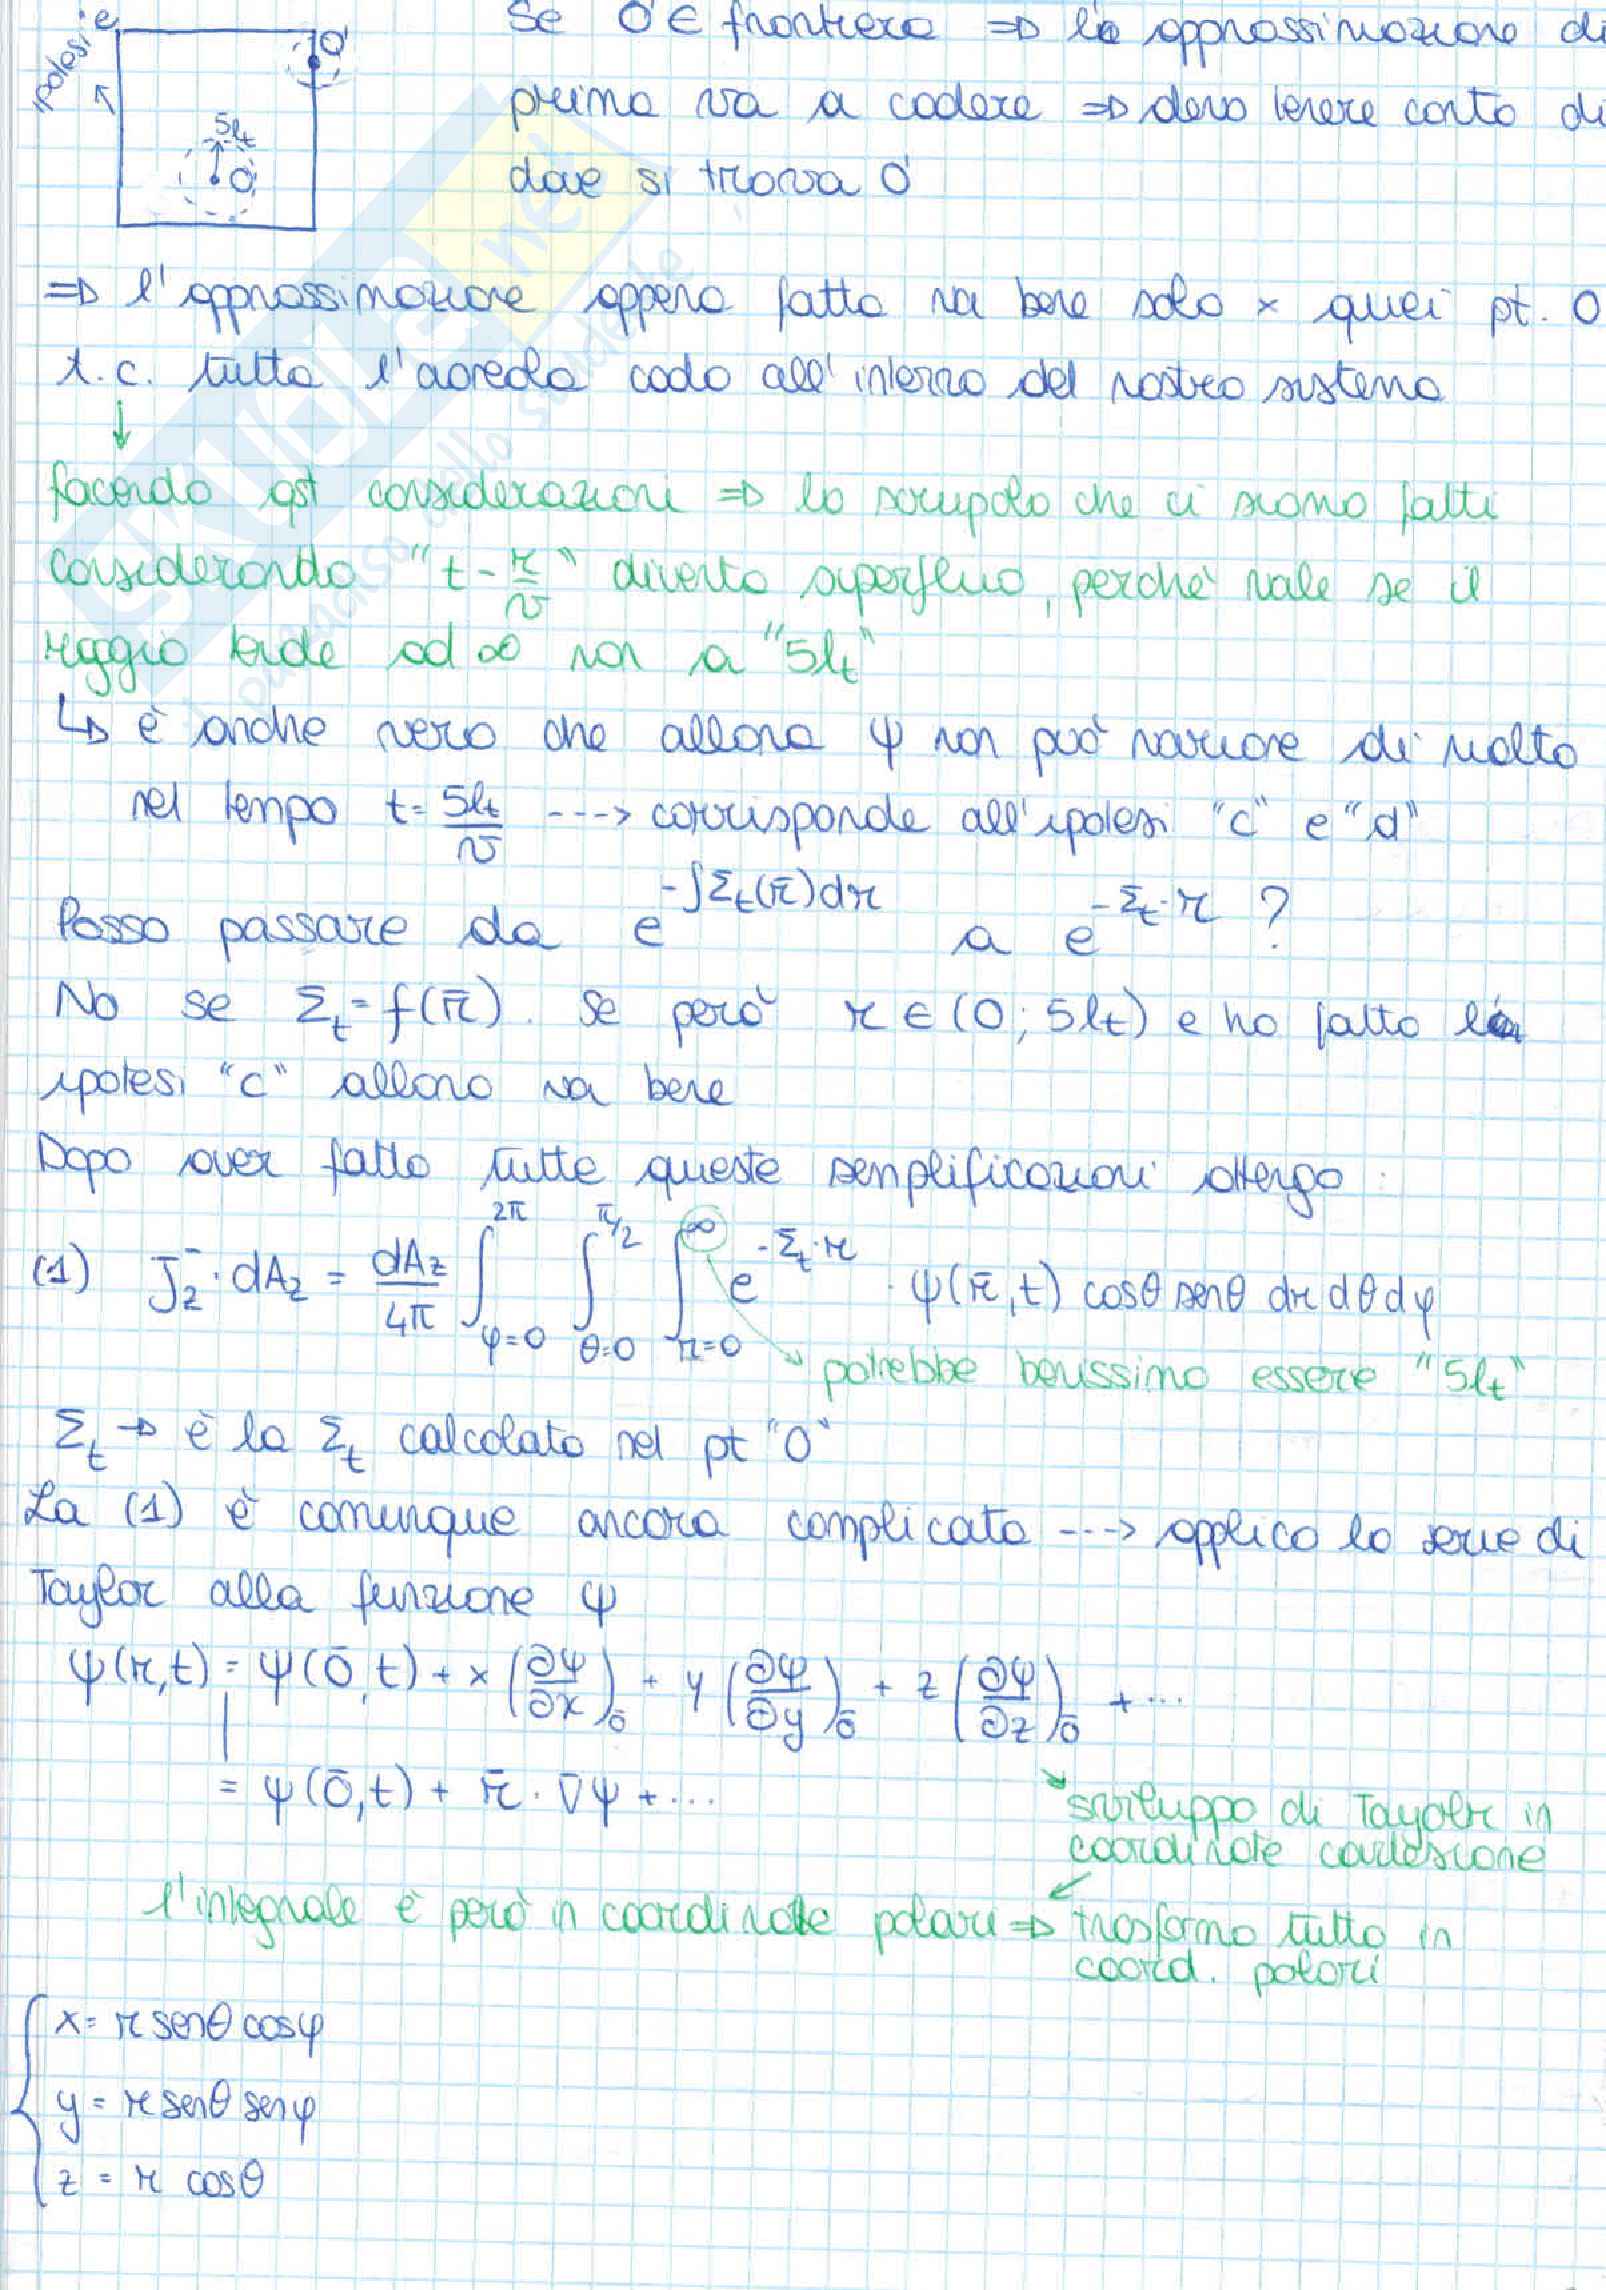 ipotesi e
O'
5lt
O
Se O' ∈ frontiera => la approssimazione di
prima va a cadere => devo tenere conto di
dove si trova O'
=> l'approssimazione appena fatta va bene solo x quei pt. O
t.c. tutta l'aureola cada all'interno del nostro sistema
↓
facendo qst considerazioni => lo scrupolo che ci siamo fatti
considerando "t - r/v" diventa superfluo, perchè vale se il
raggio tende ad ∞ non a "5lt"
↳ è anche vero che allora ψ non può variare di molto
nel tempo t = 5lt/v ---> corrisponde all'ipotesi "c" e "d"
Posso passare da e^{-∫Σt(r̄)dr} a e^{-Σt·r} ?
No se Σt = f(r̄). Se però r ∈ (0; 5lt) e ho fatto la
ipotesi "c" allora va bene
Dopo aver fatto tutte queste semplificazioni ottengo:
(1) Jz⁻·dAz = dAz/4π ∫_{φ=0}^{2π} ∫_{θ=0}^{π/2} ∫_{r=0}^{∞} e^{-Σt·r} · ψ(r̄,t) cosθ senθ dr dθ dφ
potrebbe benissimo essere "5lt"
Σt → è la Σt calcolata nel pt "O"
La (1) è comunque ancora complicata ---> applico la serie di
Taylor alla funzione ψ
ψ(r,t) = ψ(ō,t) + x (∂ψ/∂x)_ō + y (∂ψ/∂y)_ō + z (∂ψ/∂z)_ō + ...
= ψ(ō,t) + r̄ · ∇ψ + ...
sviluppo di Tayolr in
coordinate cartesiane
l'integrale è però in coordinate polari => trasformo tutto in
coord. polari
x = r senθ cosφ
y = r senθ senφ
z = r cosθ